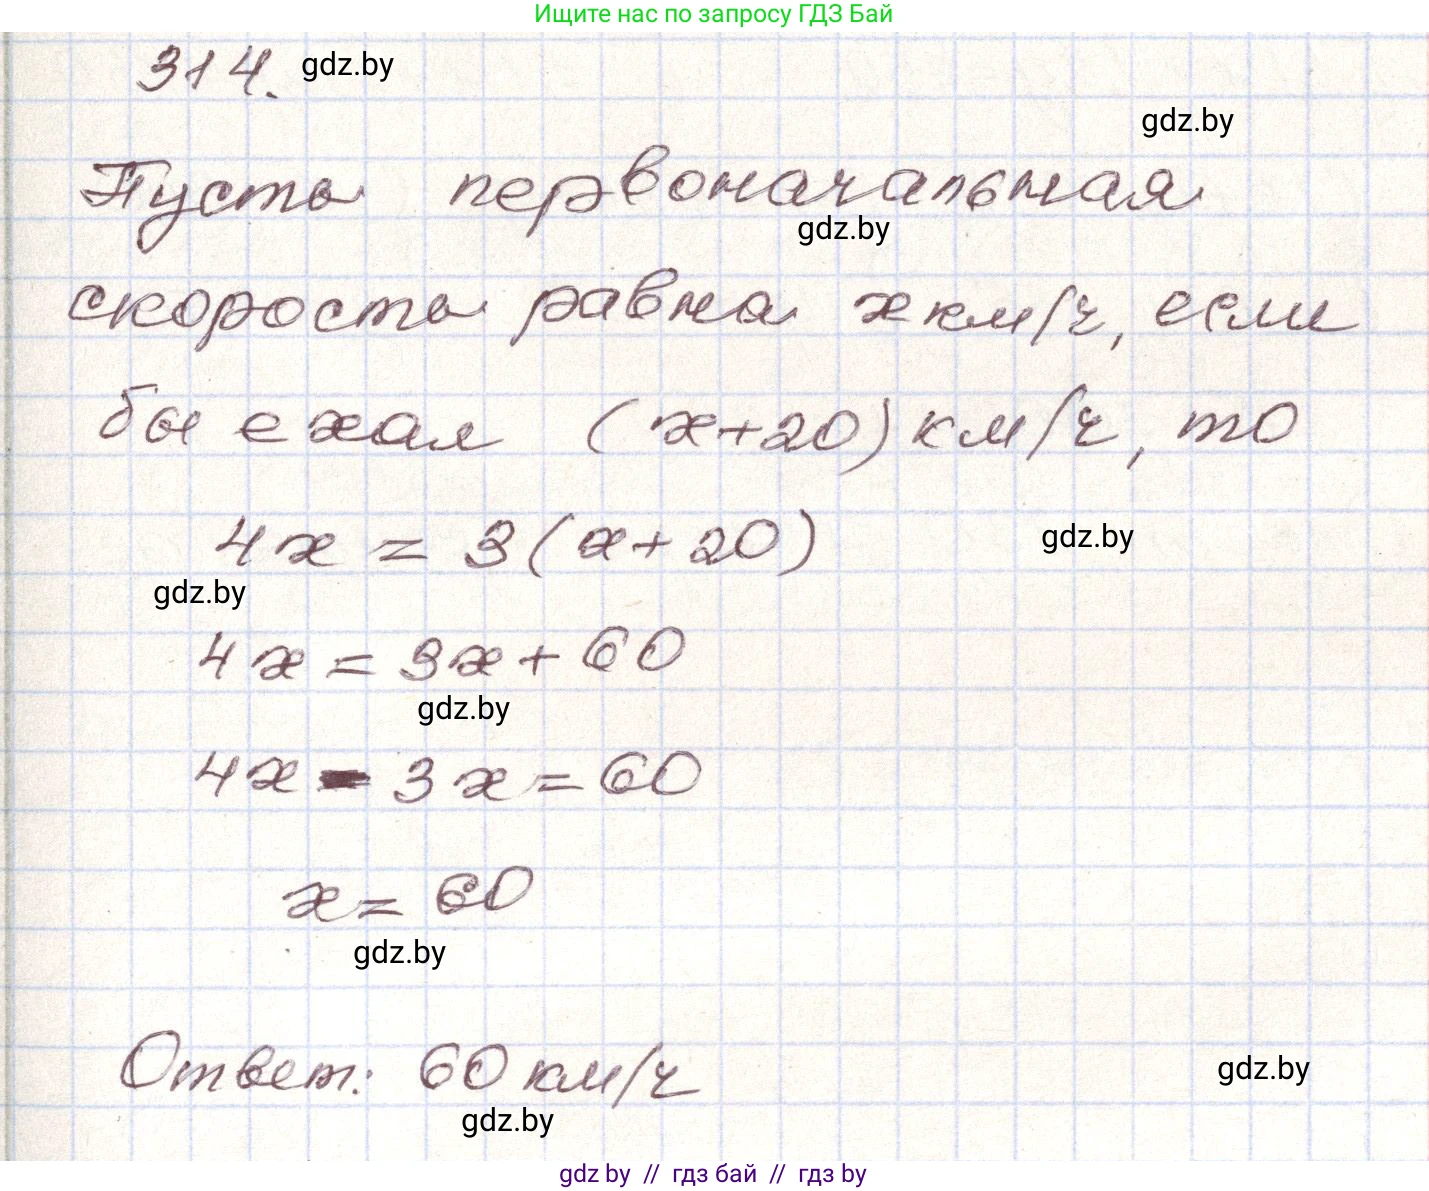 Ищите нас по запросу ГДЗ Бай
314. gdz.by
gdz.by
Пусть первоначальная
gdz.by
скорость равна x км/ч, если
бы ехал (x+20) км/ч, то
4x = 3(x+20)
gdz.by
gdz.by
4x = 3x + 60
gdz.by
4x - 3x = 60
x = 60
gdz.by
Ответ: 60 км/ч
gdz.by
gdz.by
gdz by // гдз бай // гдз by